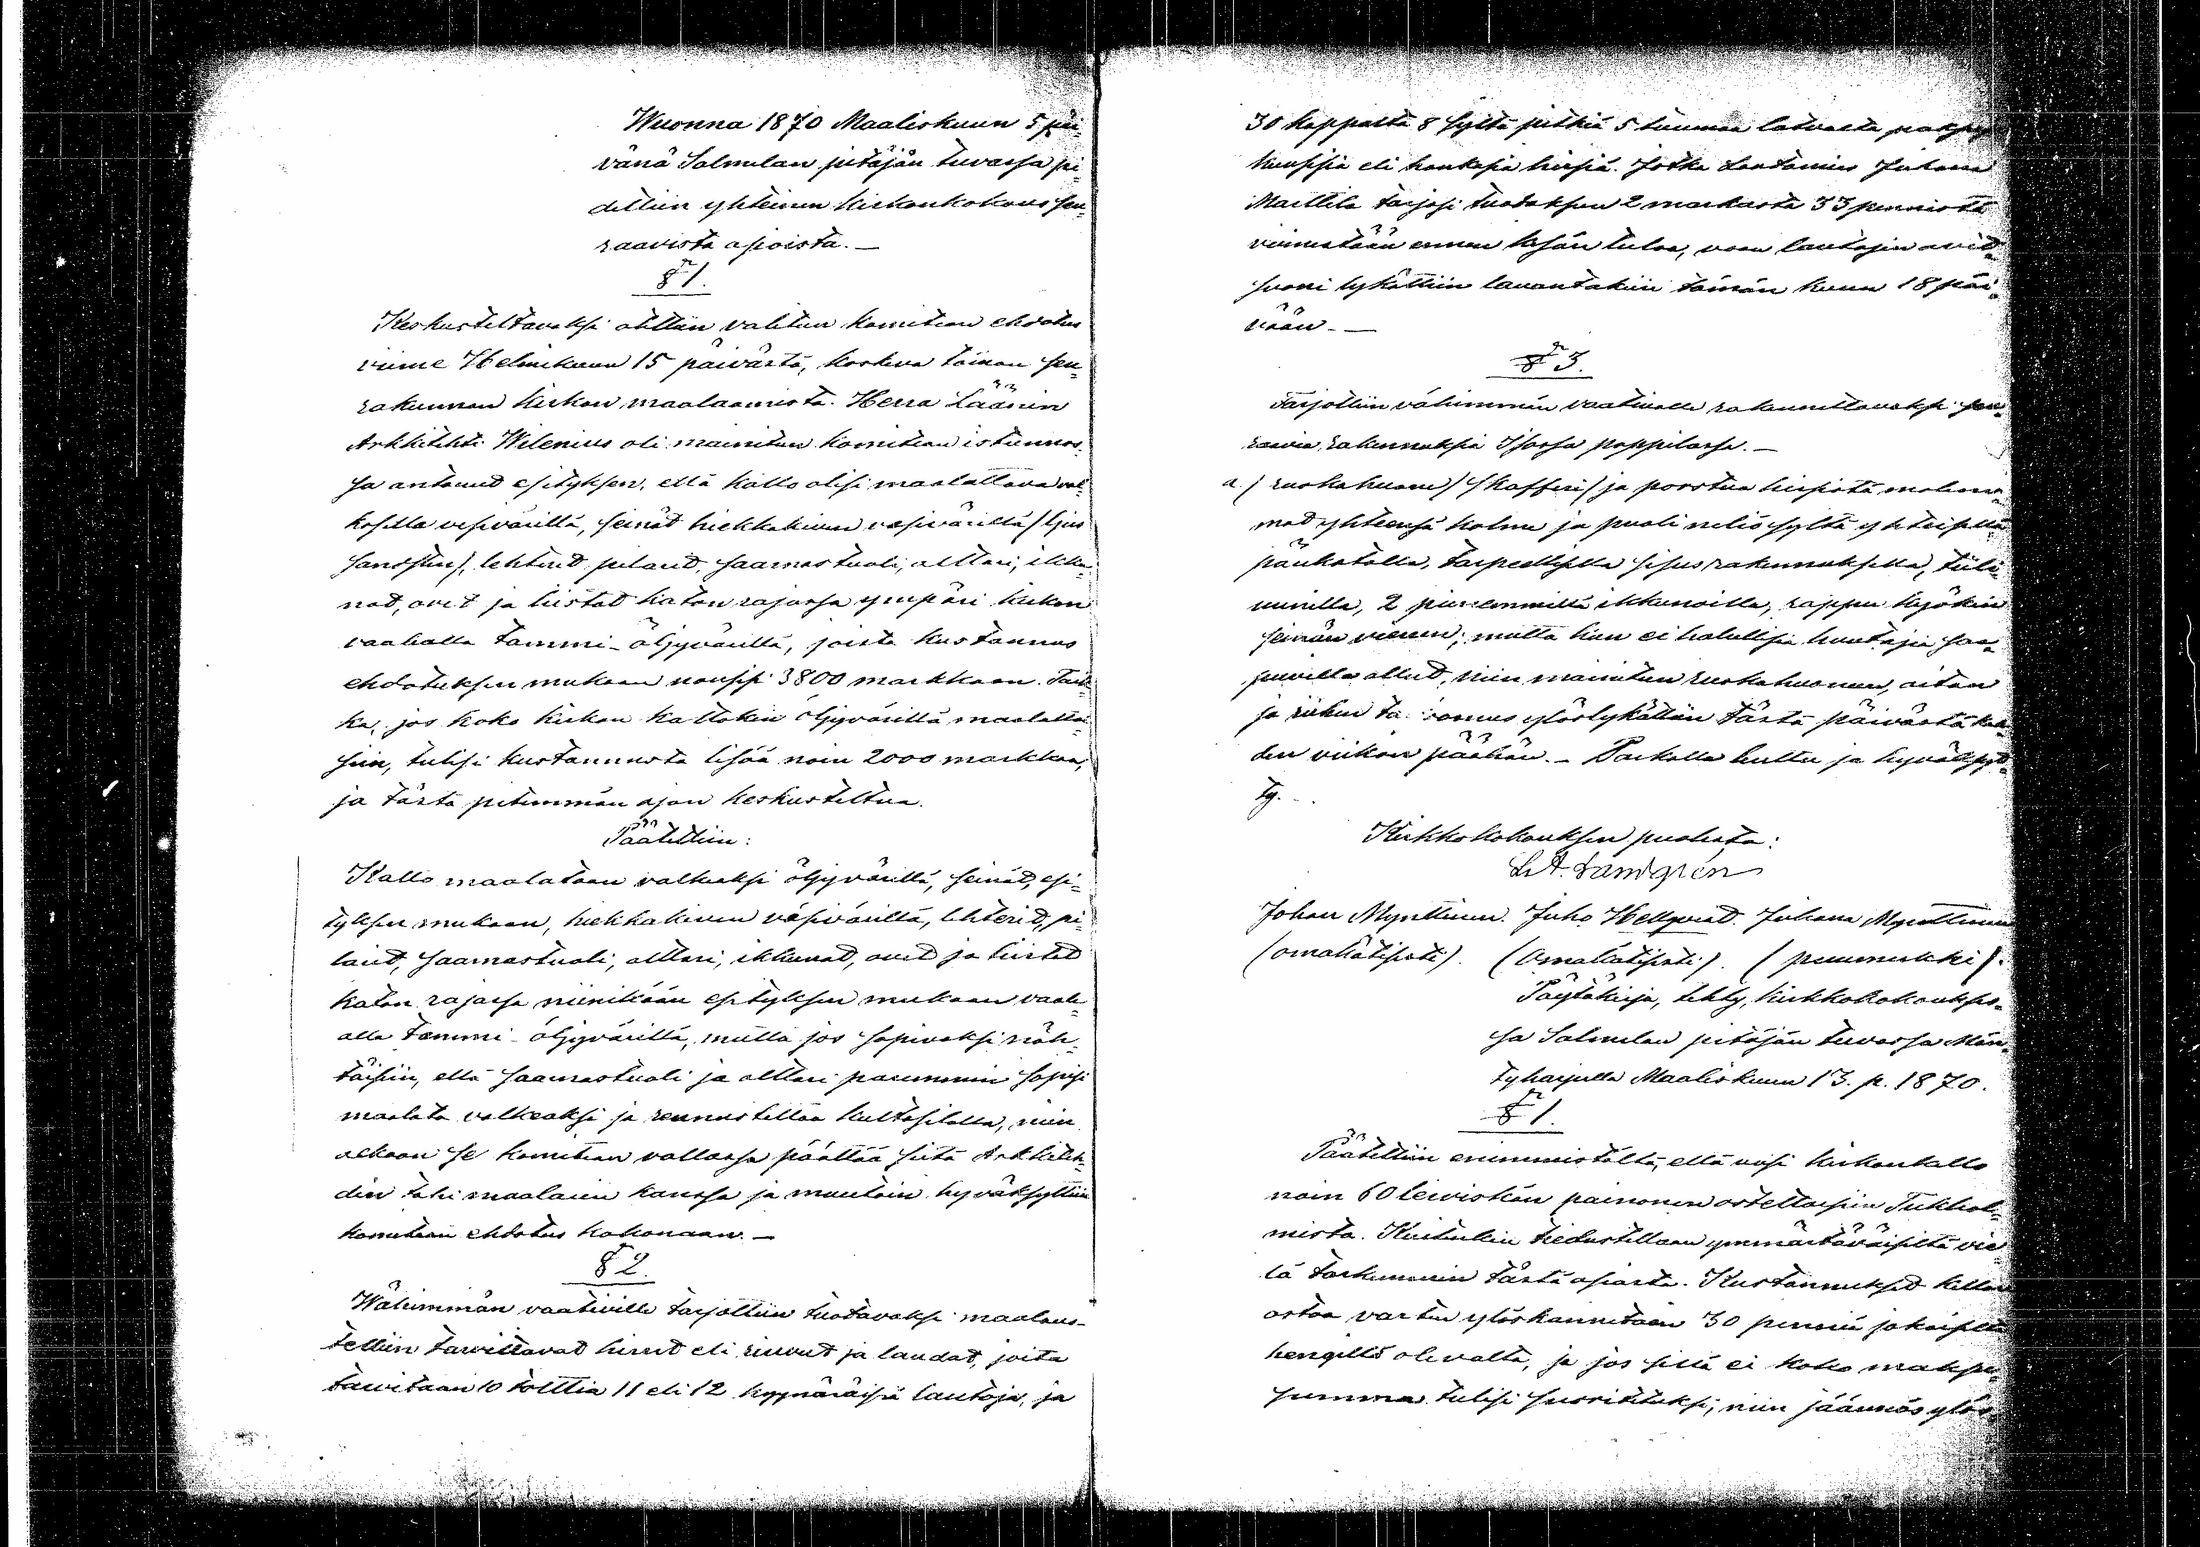 Wuonna 1870 Maaliskuun 5 päi-
vänä Salmulan pitäjän tuvassa pi-
dettiin yhteinen kirkonkokous seu-
raavista asioista. —
§ 1.
Keskusteltavaksi otettiin valitun komitean ehdotus
viime Helmikuun 15 päivästä, koskeva tämän seu-
rakunnan kirkon maalaamista. Herra Läänin
Arkkitehti Wilenius oli mainitun komitean istunnos-
sa antanud esityksen, että katto olisi maalattava val-
kosella vesivärillä, seinät hiekkakiven vesivärillä (ljus
sandsten), lehterid, pilarid, saarnastuoli, alttari, ikku-
nad, ovet ja listad katon rajassa ympäri kirkon
vaalealla tammi-öljyvärillä, joista kustannus
ehdotuksen mukaan nousisi 3800 markkaan. Taik-
ka, jos koko kirkon kattokin öljyvärillä maalattai-
siin, tulisi kustannusta lisää noin 2000 markkaa,
ja tästä pitemmän ajan keskusteltua.
Päätettiin:
Katto maalataan valkeaksi öljyvärillä, seinät, esi-
tyksen mukaan, hiekkakiven vesivärillä, lehterid, pi-
larid, saarnastuoli, alttari, ikkunad, ovet ja listad
katon rajassa niinikään esityksen mukaan vaale-
alla tammi-öljyvärillä, mutta jos sopivaksi näh-
täisiin, että saarnastuoli ja alttari paremmin sopisi
maalata valkeaksi ja reunustellaa kultasilalla, niin
olkoon se komitean vallassa päättää siitä Arkkiteh-
din tahi maalarin kanssa ja muutoin hyväksyttiin
komitean ehdotus kokonaan. —
§ 2.
Wähimmän vaativille tarjottiin tuotavaksi maalaus-
telliin tarvittavat hirret eli riuvut ja laudat, joita
tarvitaan 10 tolttia 11 eli 12 kyynäräisiä lautoja, ja
30 kappaletta 8 syltä pitkiä 5 tuumaa latvasta
kuusia eli honkisia hirsiä. Jotka Lautamies Juhana
Marttila tarjosi tuodaksen 2 markasta 33 pennistä
viimistään ennen kesän tuloa, vaan lautojen
lykättiin lauantakiin tämän kuun 18 päi-
vään. —
§ 3.
Tarjottiin vähimmän vaativalle rakennettavaksi seu-
raavia rakennuksia Isossa pappilassa. —
a.) ruokahuone (skafferi) ja porstua hirsistä molem-
mad yhteensä kolme ja puoli neliösyltä yhteisellä
pärekatolla, tarpeellisella sisusrakennuksella, tiili-
uunilla, 2 pienemmillä ikkunoilla, rappu kyökin
seinän viereen; mutta kun ei halullisia huutajia saa-
puvilla ollut, niin mainitun ruokahuoneen, aitan
ja riihen ylöslykättiin tästä päivästä kah-
den viikon päähän. — Paikalla luettu ja hyväksyt-
ty.
Kirkkokokouksen puolesta:
Johan Mynttinen. Juho Hellqvist. Juhana Mynttinen
(omakätisesti). (Omakätisesti). (puumerkki).
Pöytäkirja, tehty, kirkkokokoukses-
sa Salmulan pitäjän tuvassa Män-
tyharjulla Maaliskuun 13. p. 1870.
§ 1.
Päätettiin enimmistöltä, että uusi kirkonkello
noin 60 leiviskän painonen ostettaisiin Tukhol-
mista. Kuitenkin tiedustellaan ymmärtäväisiltä vie-
lä tarkemmin tästä asiasta. Kustannukset kellon
ostoa varten ylöskannetaan 30 penniä jokaiselta
hengillä olevalta, ja jos siitä ei koko maksu-
summa tulisi suoritetuksi, niin jäännös ylös-